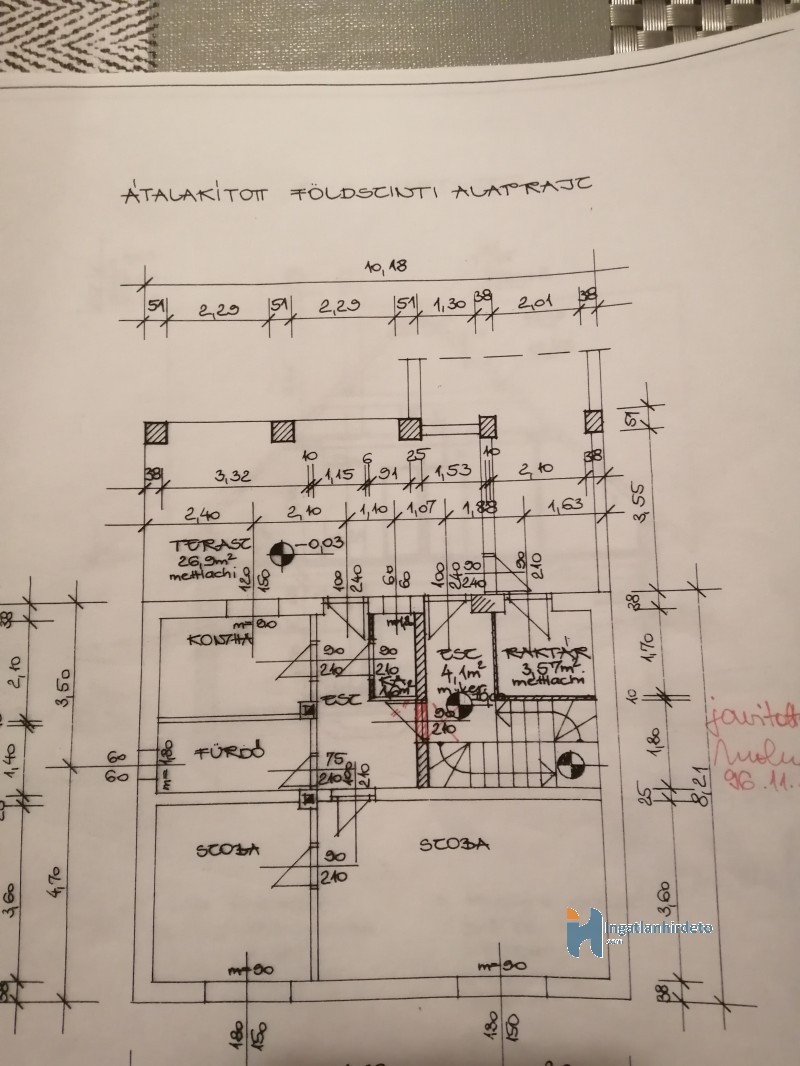 ÁTALAKÍTOTT FÖLDSZINTI ALAPRAJZ
10,18
51 2,29 51 2,29 51 1,30 38 2,01 38
51
10 6 25 10
38 3,32 1,15 91 1,53 2,10 38
2,40 2,10 1,10 1,07 1,88 1,63
3,55
TERASZ
26,9m²
mettlachi
-0,03
120 150
100 240
60 60
100 240
90 240
90 210
m=90
KONYHA
90 210
90 210
ESZ
ESZ
4,1m²
RAKTÁR
3,57m²
mettlachi
90 210
38
2,10
3,50
1,40
38
1,70
10
1,80
25
8,21
FÜRDŐ
60
60
m=1,80
75 210
100 210
96.11.
SZOBA
SZOBA
90 210
4,70
3,60
38
3,60
38
m=90
m=90
180 150
180 150
Ingatlanhirdeto
.com